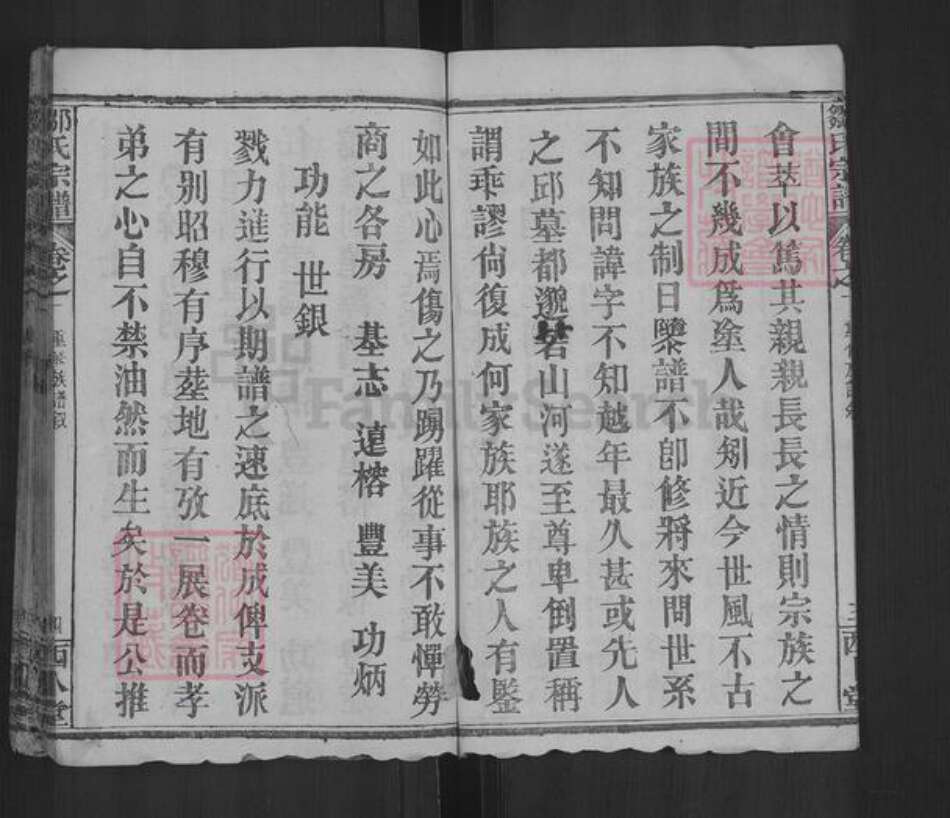 鄒氏宗譜
卷之一
會萃以篤其親親長長之情則宗族之
間不幾成爲塗人哉矧近今世風不古
家族之制日隳譜不卽修將來問世系
不知問諱字不知越年最久甚或先人
之邱墓都邈若山河遂至尊卑倒置稱
謂乖謬尙復成何家族耶族之人有鑒
如此心焉傷之乃踴躍從事不敢憚勞
商之各房 基志 連榕 豐美 功炳
功能 世銀
戮力進行以期譜之速底於成俾支派
有别昭穆有序塟地有攷一展卷而孝
弟之心自不禁油然而生矣於是公推
鄒氏宗譜
卷之一
四
西八堂
FamilySearch